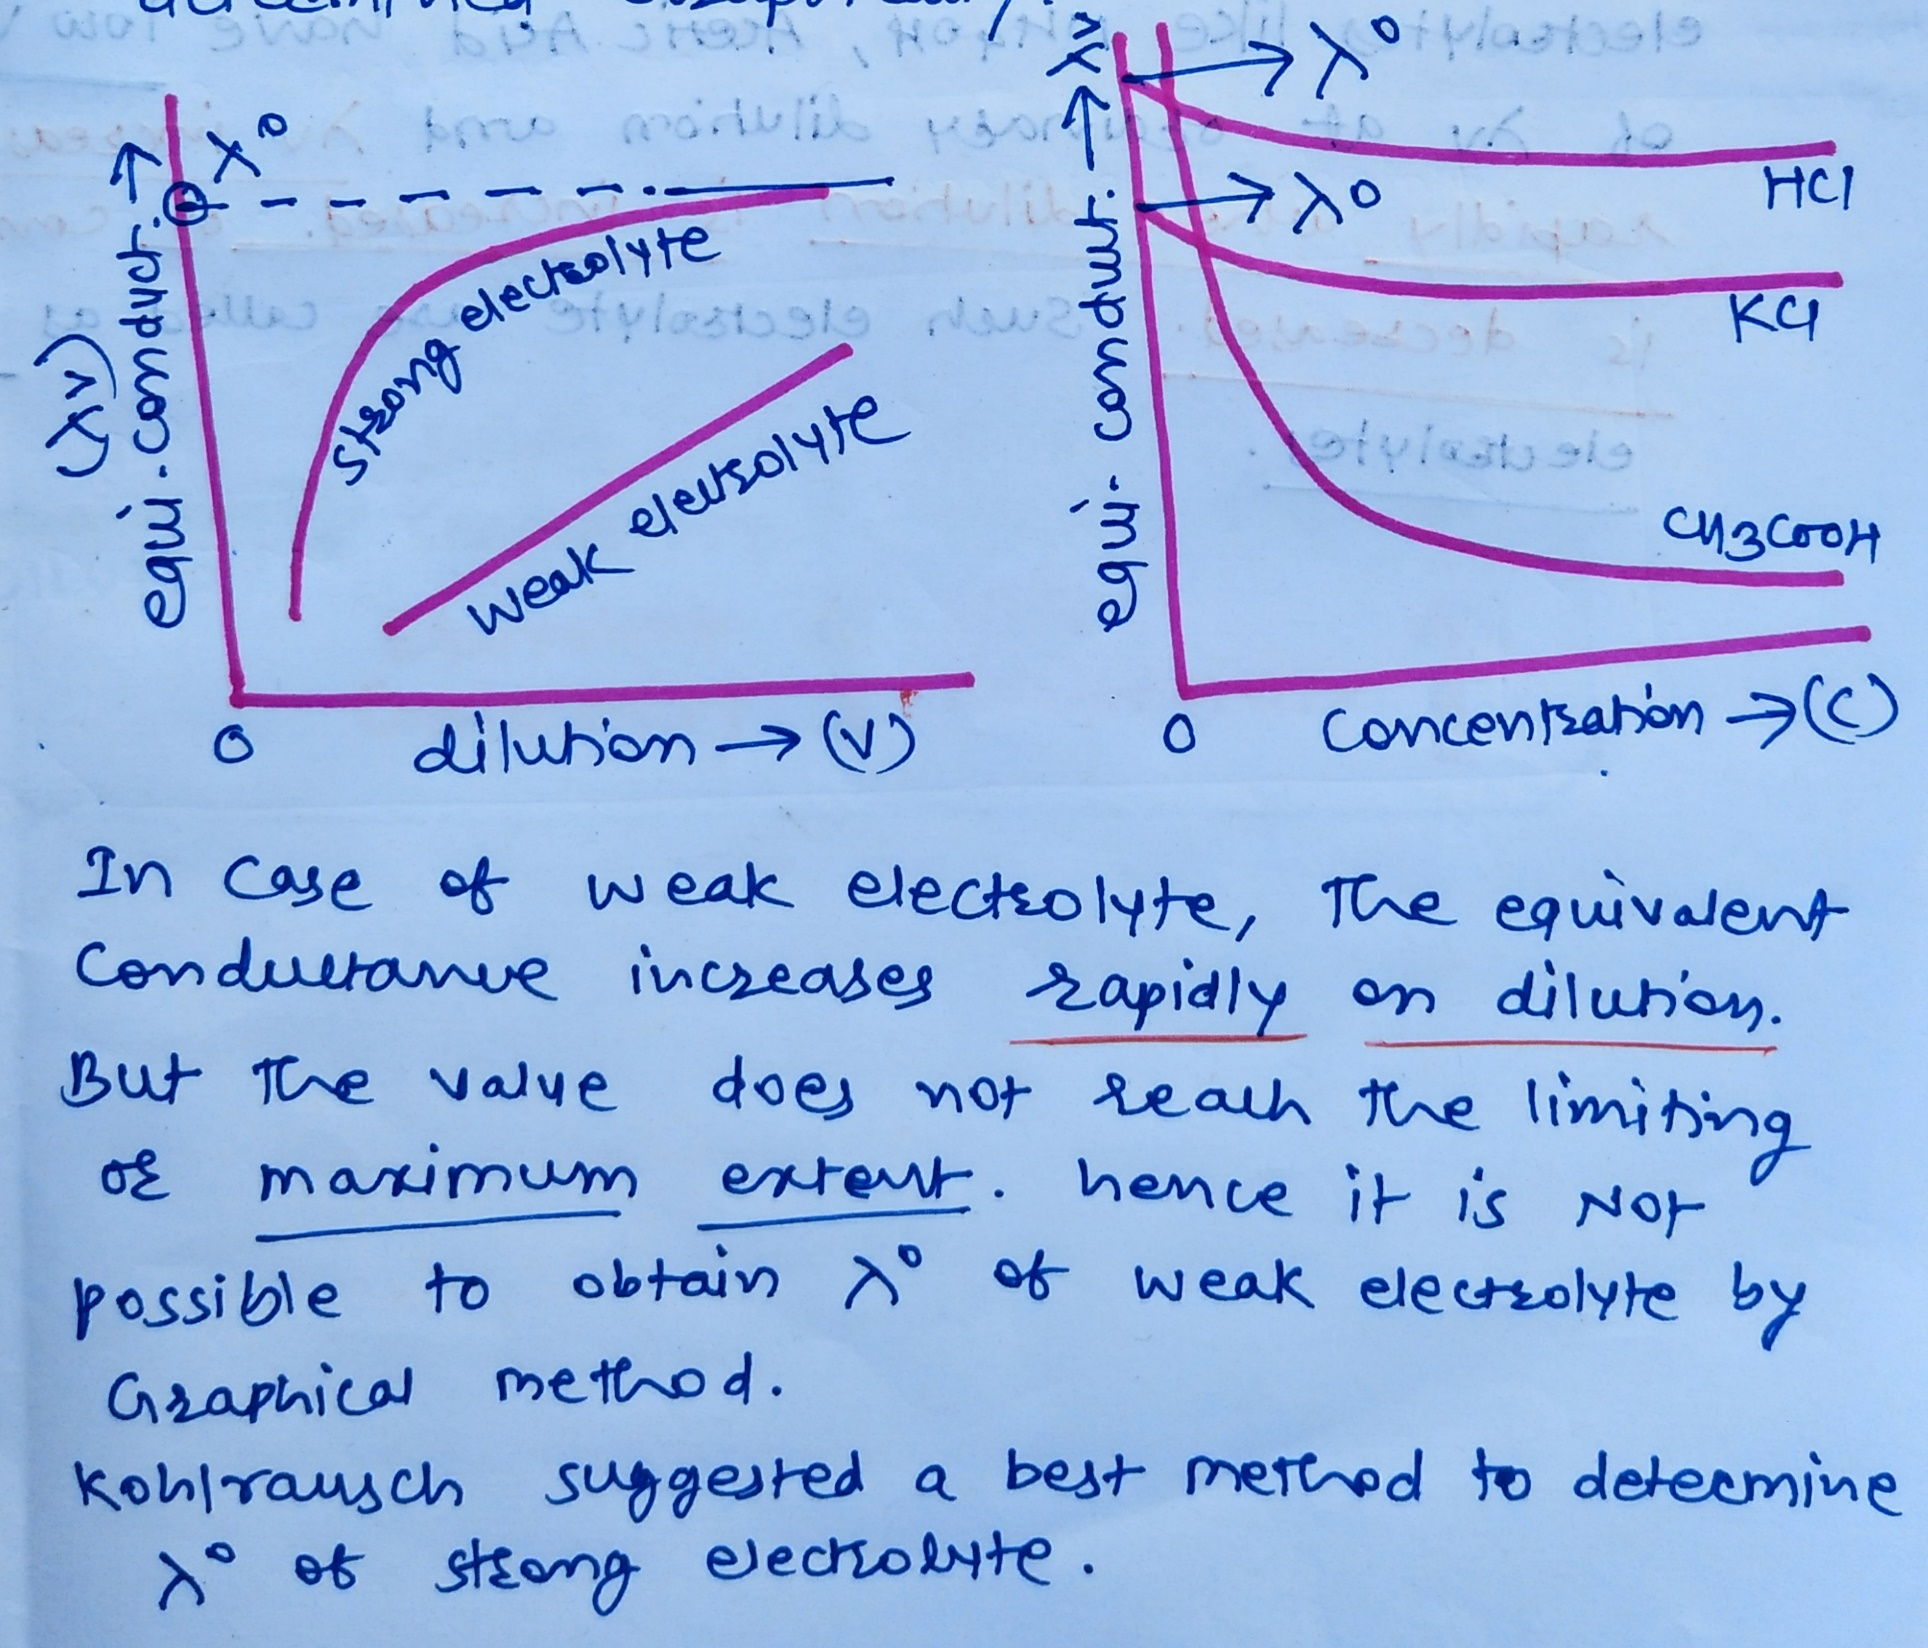 λ°
(λv)
equi. conduct. →
strong electrolyte
weak electrolyte
0
dilution → (v)
λv
equi. conduct. →
λ°
HCl
λ°
KCl
CH3COOH
0
Concentration → (C)
In Case of weak electrolyte, The equivalent
Conductance increases rapidly on dilution.
But The value does not reach the limiting
or maximum extent. hence it is NOT
possible to obtain λ° of weak electrolyte by
Graphical method.
Kohlrausch suggested a best method to determine
λ° of strong electrolyte.